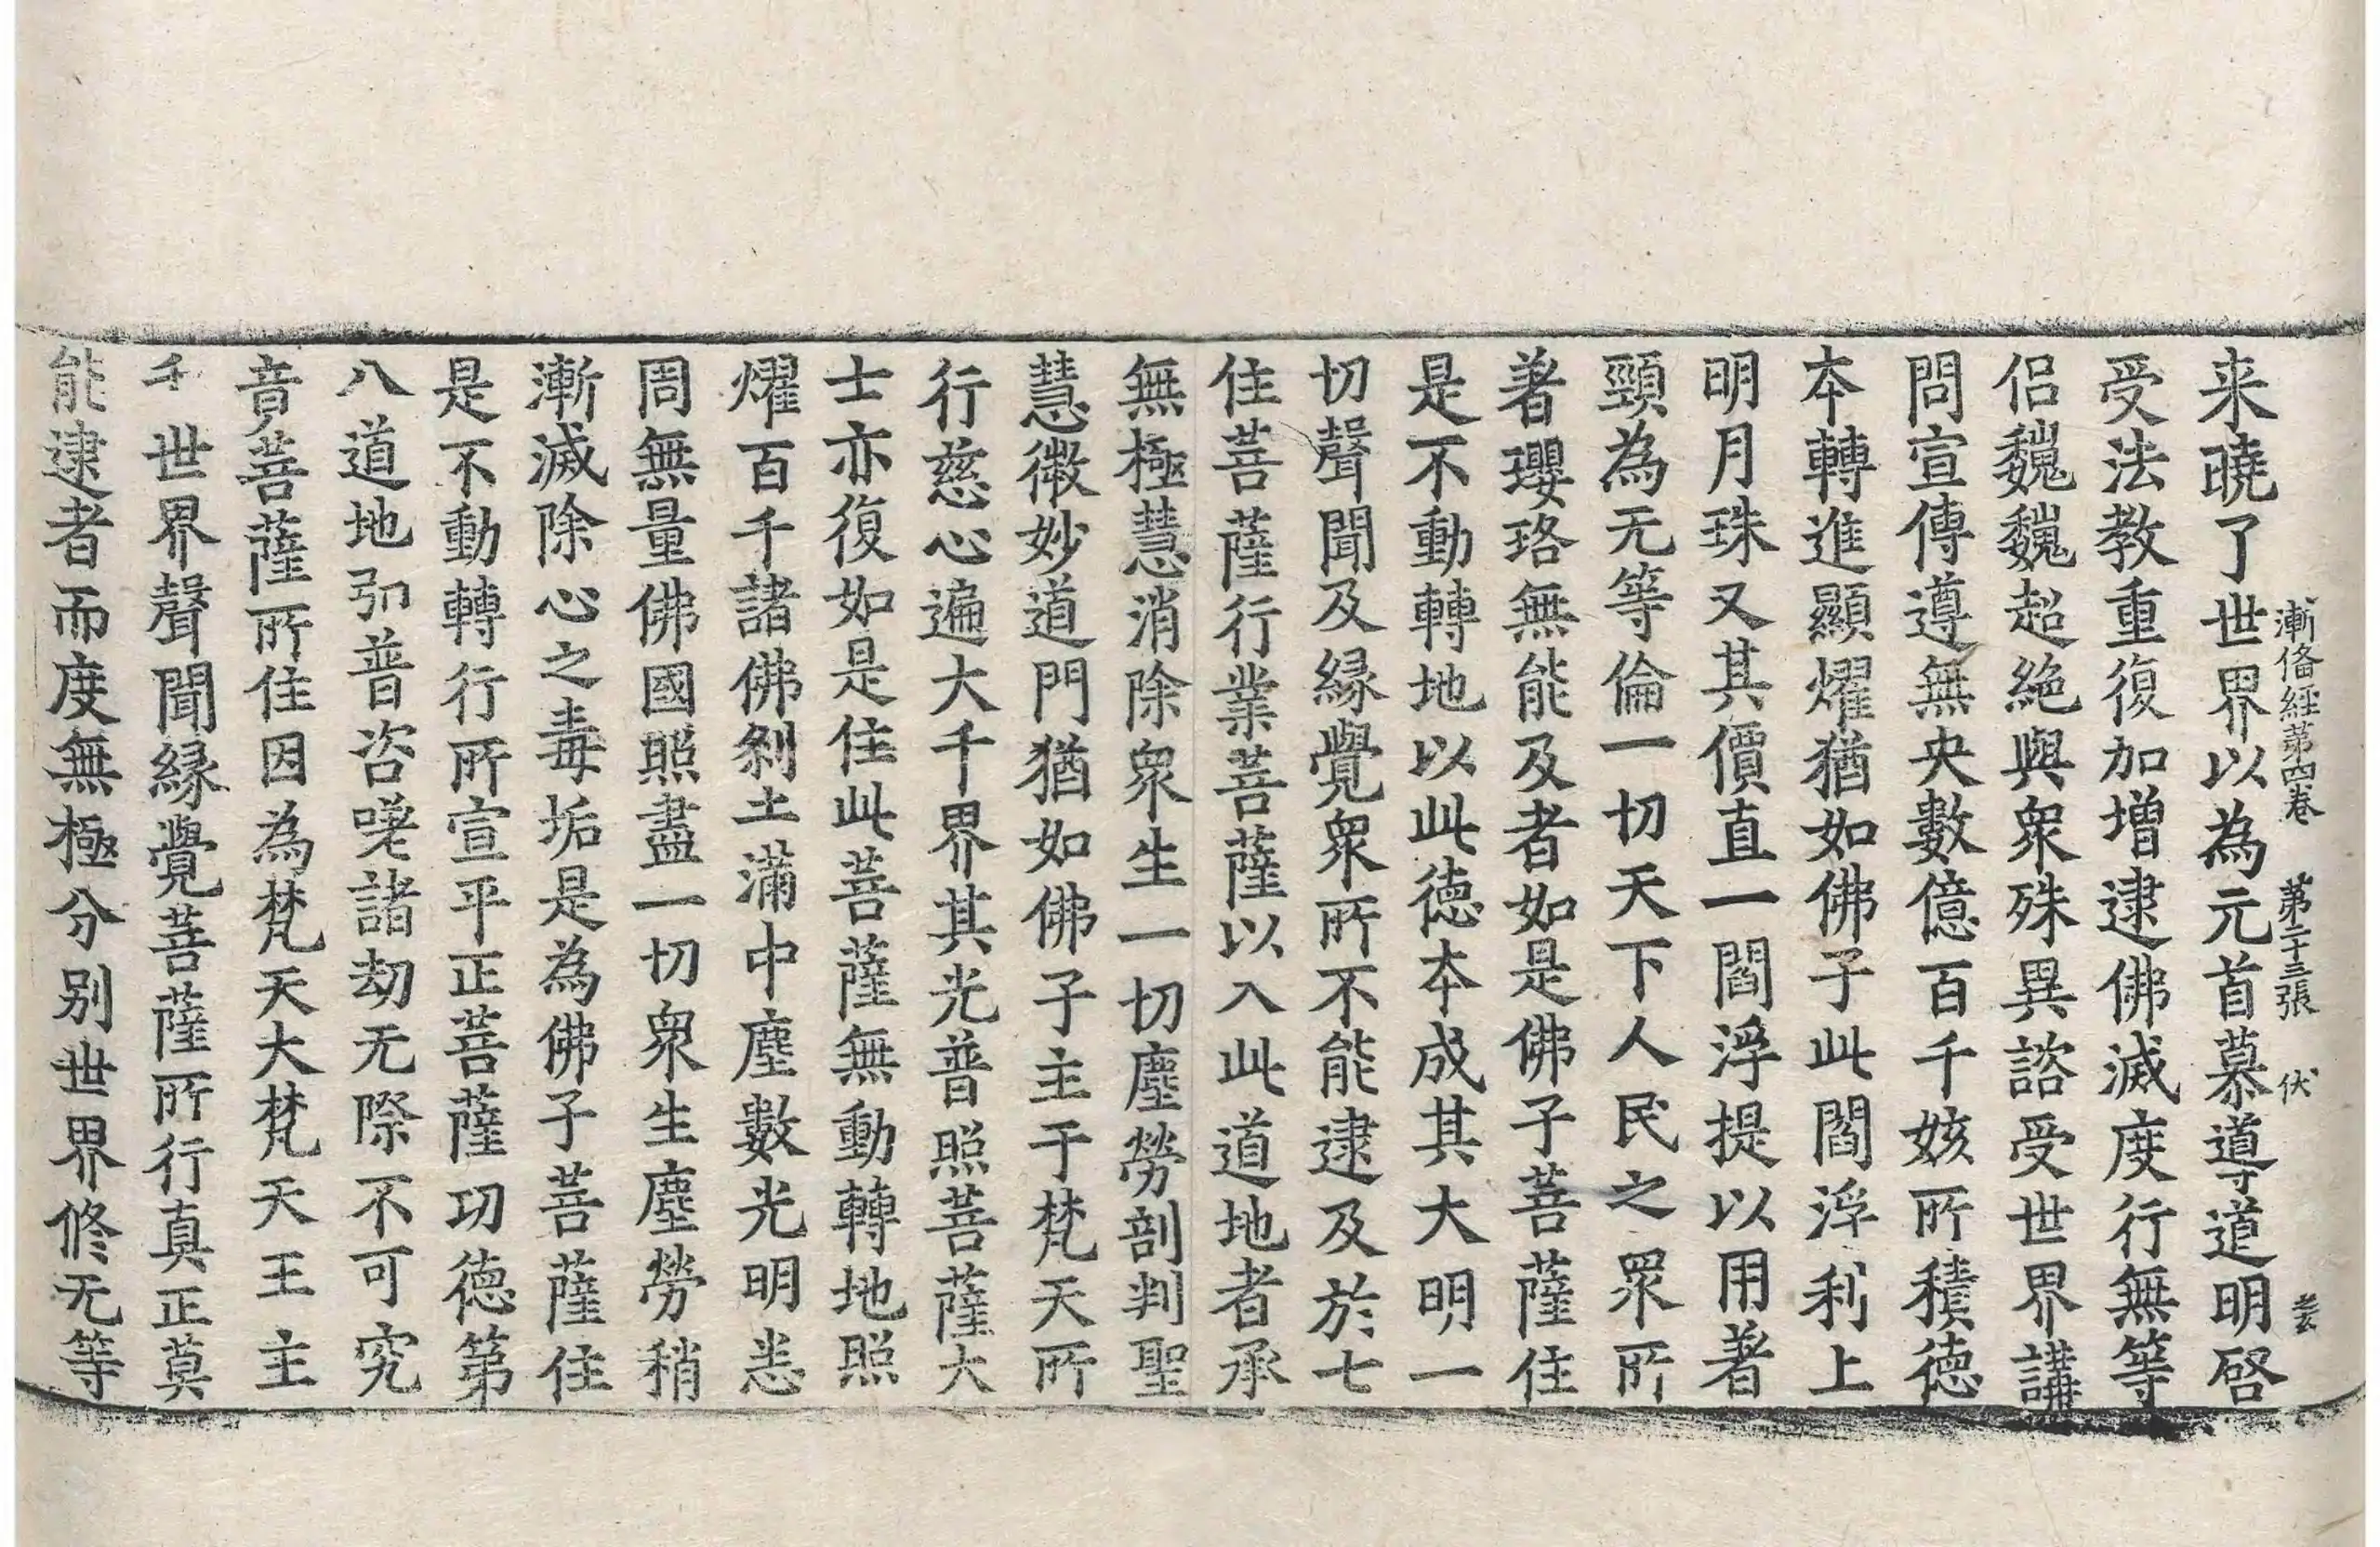 漸俻經第四卷 第二十三張 伏
来曉了世界以為元首慕導道明啓
受法教重復加增逮佛滅度行無等
侣巍巍超絶與衆殊異諮受世界講
問宣傳遵無央數億百千姟所積德
夲轉進顯耀猶如佛子此閻浮利上
明月珠又其價直一閻浮提以用著
頸為无等倫一切天下人民之眾所
著瓔珞無能及者如是佛子菩薩住
是不動轉地以此德夲成其大明一
切聲聞及縁覺衆所不能逮及於七
住菩薩行業菩薩以入此道地者承
無極慧消除衆生一切塵勞剖判聖
慧微妙道門猶如佛子主于梵天所
行慈心遍大千界其光普照菩薩大
士亦復如是住此菩薩無動轉地照
燿百千諸佛剎土滿中塵數光明恚
周無量佛國照盡一切衆生塵勞稍
漸滅除心之毒垢是為佛子菩薩住
是不動轉行所宣平正菩薩功德第
八道地引普咨嗟諸劫无際不可究
竟菩薩所住因為梵天大梵天王主
千世界聲聞縁覺菩薩所行真正莫
能逮者而度無極分别世界修无等